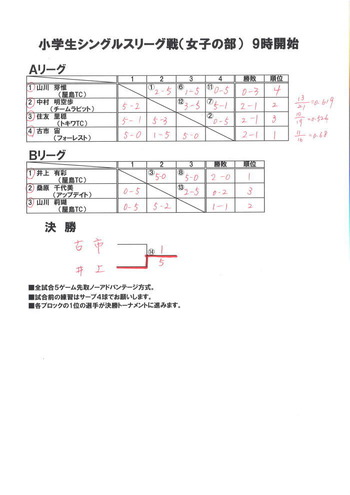 小学生シングルスリーグ戦（女子の部）９時開始
Aリーグ
1 2 3 4 勝敗 順位
1 山川 芽惟 ① 2-5 ⑥ 1-5 ⑪ 0-5 0-3 4
（屋島TC）
2 中村 明空歩 5-2 ⑫ 3-5 ⑦ 5-1 2-1 2
（チームラビット）
3 住友 里穏 5-1 5-3 ② 0-5 2-1 3
（トキワTC）
4 古市 宙 5-0 1-5 5-0 2-1 1
（フォーレスト）
13/21=0.619
Bリーグ
1 2 3 勝敗 順位
1 井上 有彩 ③ 5-0 ⑧ 5-0 2-0 1
（屋島TC）
2 桑原 千代美 0-5 ⑬ 2-5 0-2 3
（アップデイト）
3 山川 莉瑚 0-5 5-2 1-1 2
（屋島TC）
決 勝
古市 1
⑭
井上 5
■全試合5ゲーム先取ノーアドバンテージ方式。
■試合前の練習はサーブ4球でお願いします。
■各ブロックの1位の選手が決勝トーナメントに進みます。